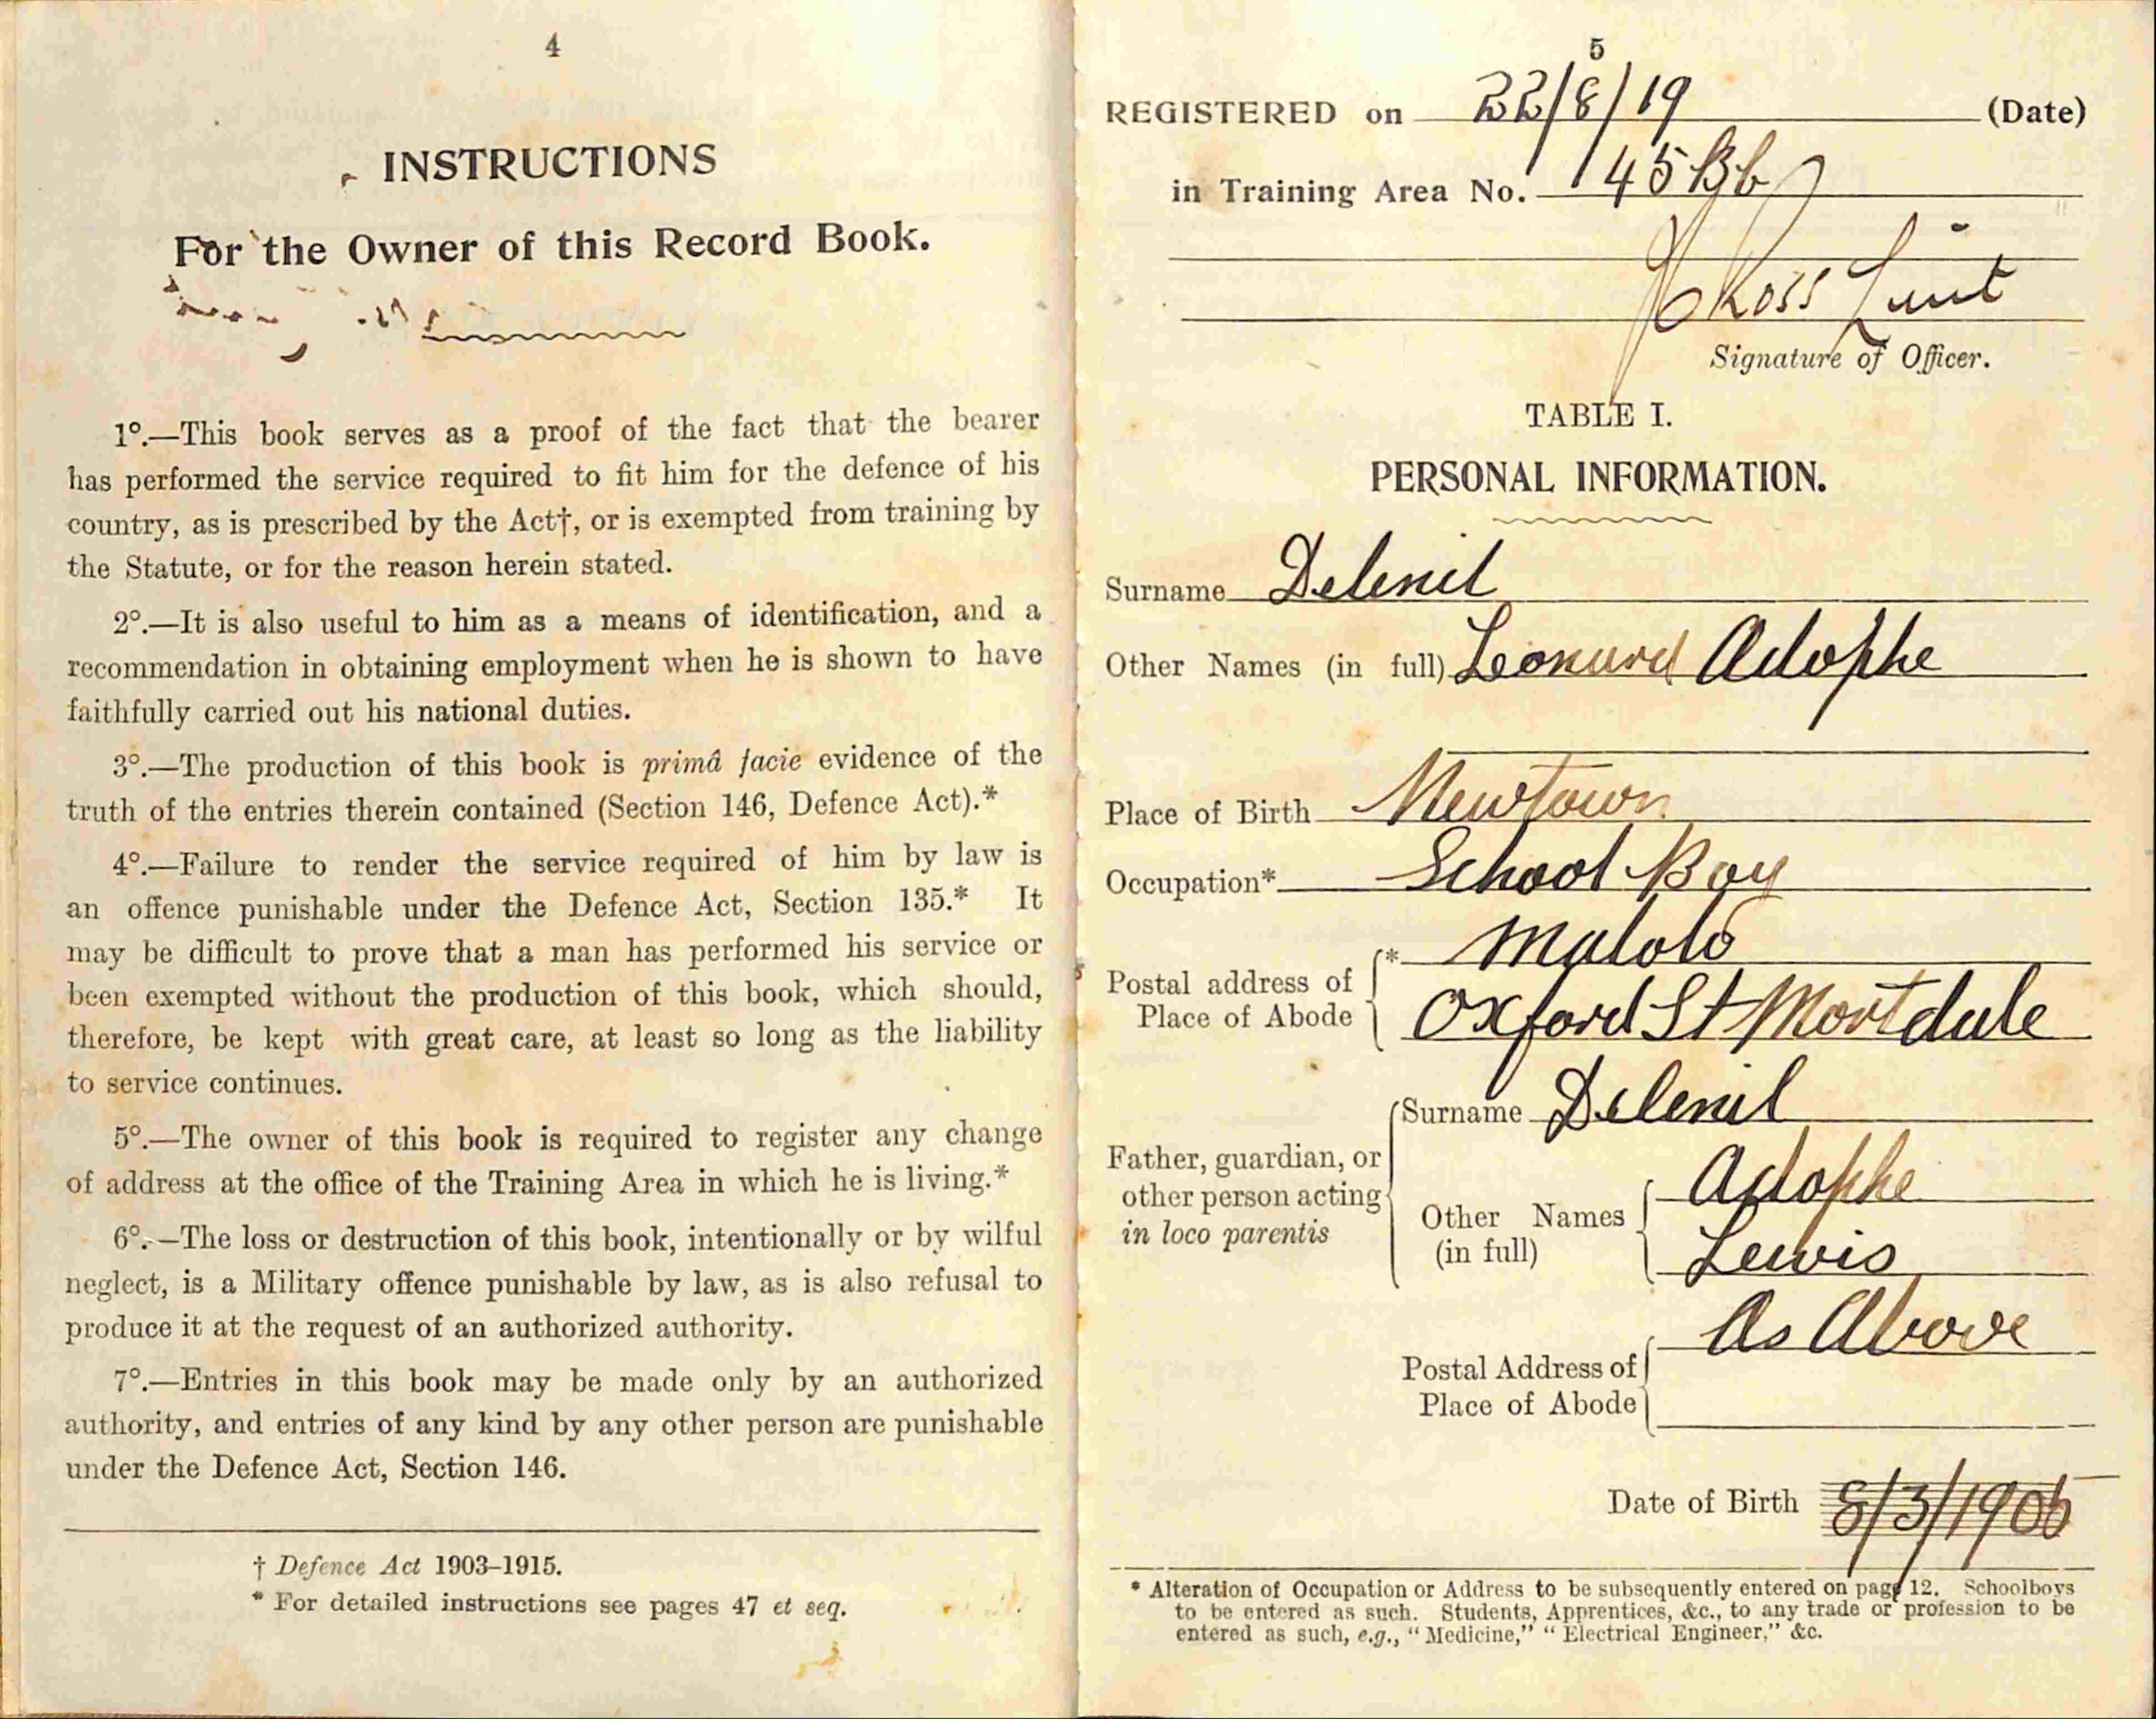 4
INSTRUCTIONS
For the Owner of this Record Book.
1°.—This book serves as a proof of the fact that the bearer
has performed the service required to fit him for the defence of his
country, as is prescribed by the Act†, or is exempted from training by
the Statute, or for the reason herein stated.
2°.—It is also useful to him as a means of identification, and a
recommendation in obtaining employment when he is shown to have
faithfully carried out his national duties.
3°.—The production of this book is primâ facie evidence of the
truth of the entries therein contained (Section 146, Defence Act).*
4°.—Failure to render the service required of him by law is
an offence punishable under the Defence Act, Section 135.* It
may be difficult to prove that a man has performed his service or
been exempted without the production of this book, which should,
therefore, be kept with great care, at least so long as the liability
to service continues.
5°.—The owner of this book is required to register any change
of address at the office of the Training Area in which he is living.*
6°.—The loss or destruction of this book, intentionally or by wilful
neglect, is a Military offence punishable by law, as is also refusal to
produce it at the request of an authorized authority.
7°.—Entries in this book may be made only by an authorized
authority, and entries of any kind by any other person are punishable
under the Defence Act, Section 146.
† Defence Act 1903–1915.
* For detailed instructions see pages 47 et seq.
5
REGISTERED on 22/8/19 (Date)
in Training Area No. 45
Ross Lieut
Signature of Officer.
TABLE I.
PERSONAL INFORMATION.
Surname Delenil
Other Names (in full) Leonard Adophe
Place of Birth Newtown
Occupation* School Boy
Postal address of Place of Abode * Malolo
Oxford St Mortdale
Father, guardian, or other person acting in loco parentis
Surname Delenil
Other Names (in full) Adophe
Lewis
Postal Address of Place of Abode As Above
Date of Birth 8/3/1905
* Alteration of Occupation or Address to be subsequently entered on page 12. Schoolboys
to be entered as such. Students, Apprentices, &c., to any trade or profession to be
entered as such, e.g., "Medicine," "Electrical Engineer," &c.